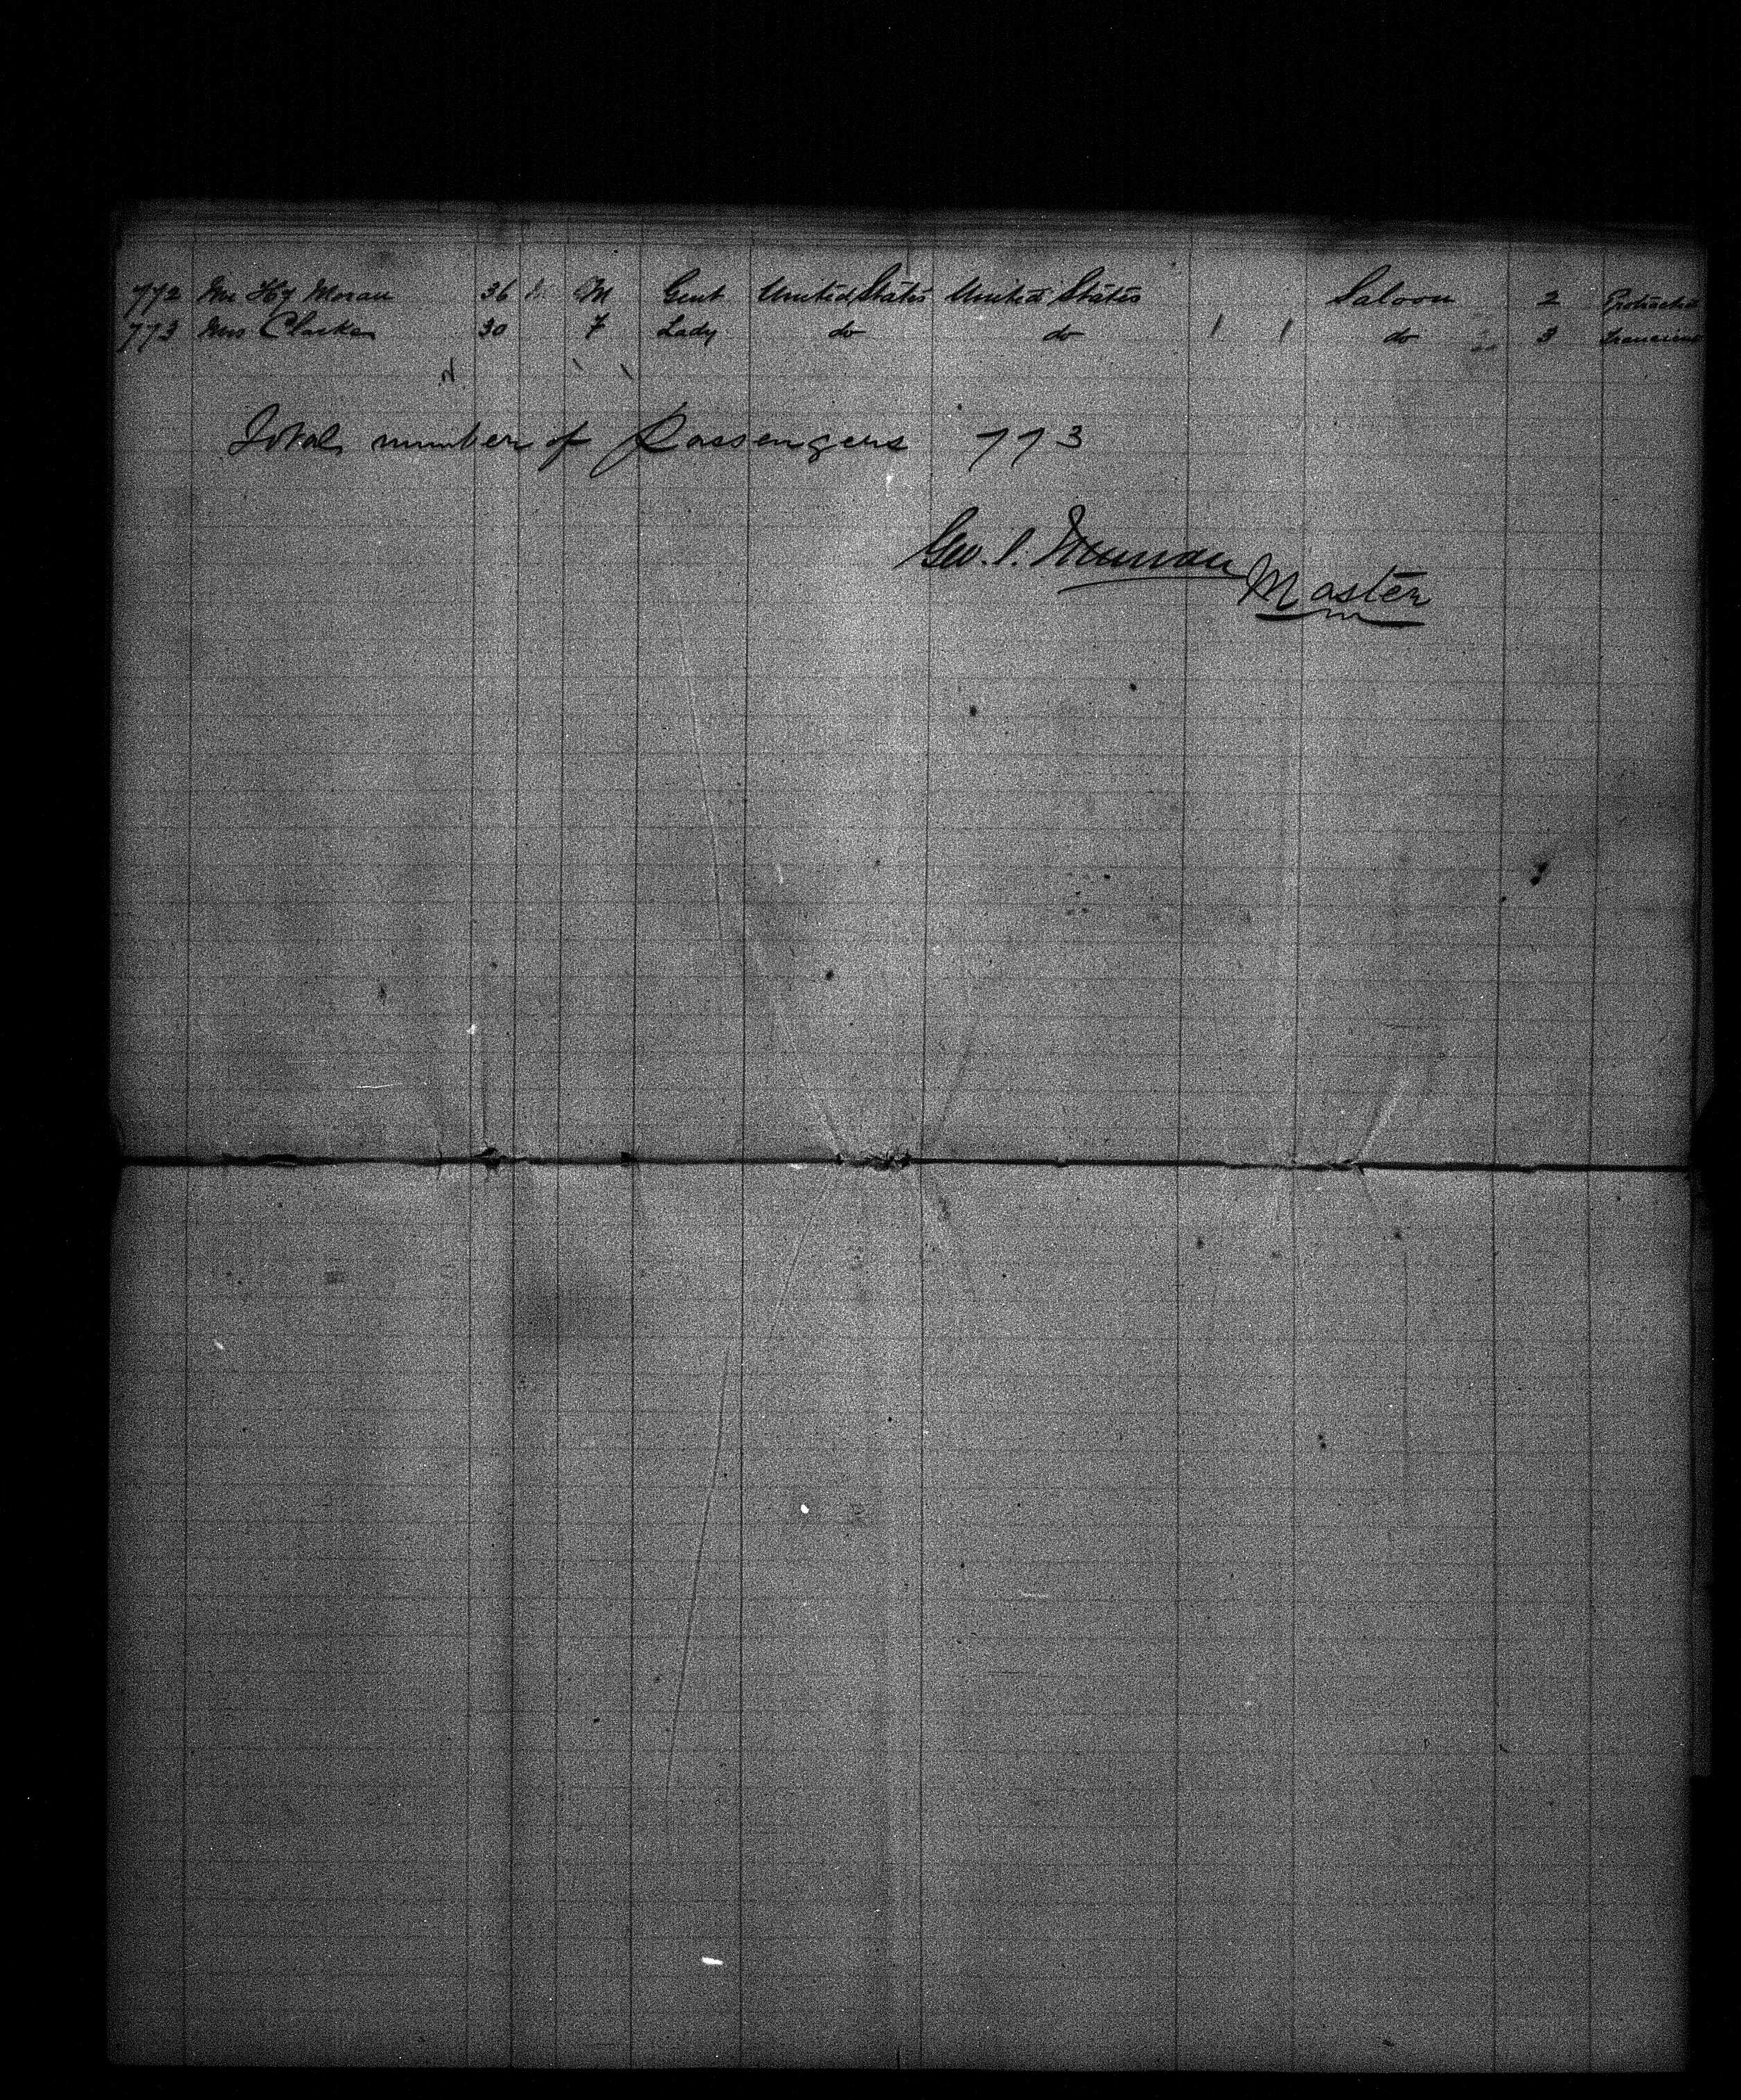 772 Mr Hy Moran 36 M Gent United States United States Saloon 2 Protracted
773 Mrs Clarke 30 F Lady do do 1 1 do 3 Transient
Total number of Passengers 773
Geo. S.
Master